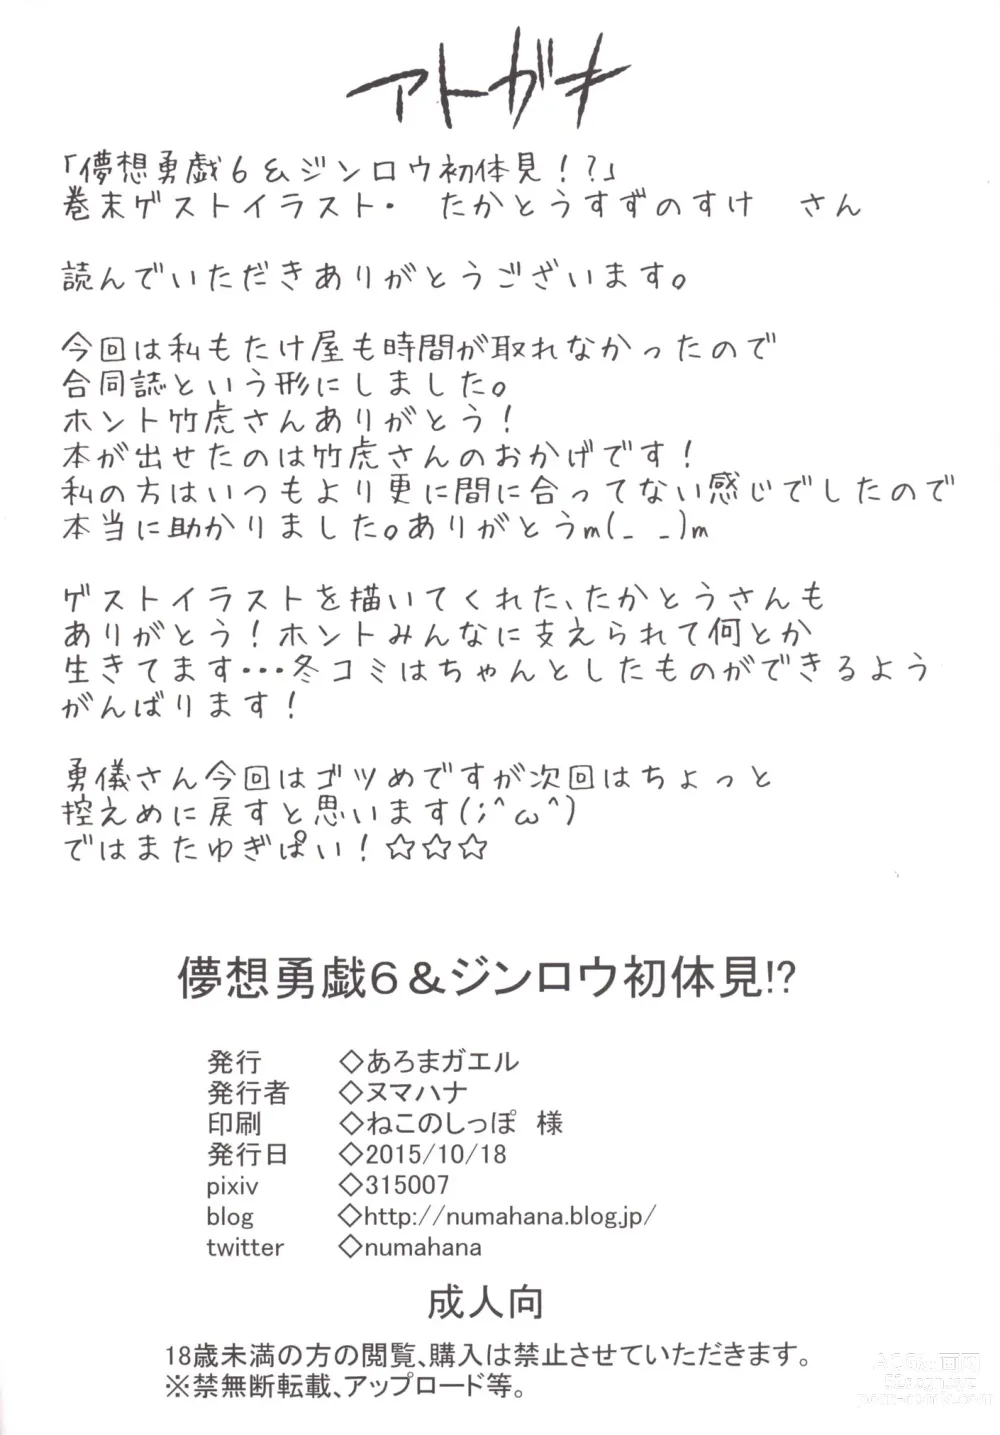 アトガキ
「儚想勇戯６＆ジンロウ初体見！？」
巻末ゲストイラスト・　たかとうすずのすけ　さん
読んでいただきありがとうございます。
今回は私もたけ屋も時間が取れなかったので
合同誌という形にしました。
ホント竹虎さんありがとう！
本が出せたのは竹虎さんのおかげです！
私の方はいつもより更に間に合ってない感じでしたので
本当に助かりました。ありがとうm(_ _)m
ゲストイラストを描いてくれた、たかとうさんも
ありがとう！ホントみんなに支えられて何とか
生きてます・・・冬コミはちゃんとしたものができるよう
がんばります！
勇儀さん今回はゴツめですが次回はちょっと
控えめに戻すと思います(;^ω^)
ではまたゆぎぱい！☆☆☆
儚想勇戯６＆ジンロウ初体見!?
発行　◇あろまガエル
発行者　◇ヌマハナ
印刷　◇ねこのしっぽ　様
発行日　◇2015/10/18
pixiv　◇315007
blog　◇http://numahana.blog.jp/
twitter　◇numahana
成人向
18歳未満の方の閲覧、購入は禁止させていただきます。
※禁無断転載、アップロード等。